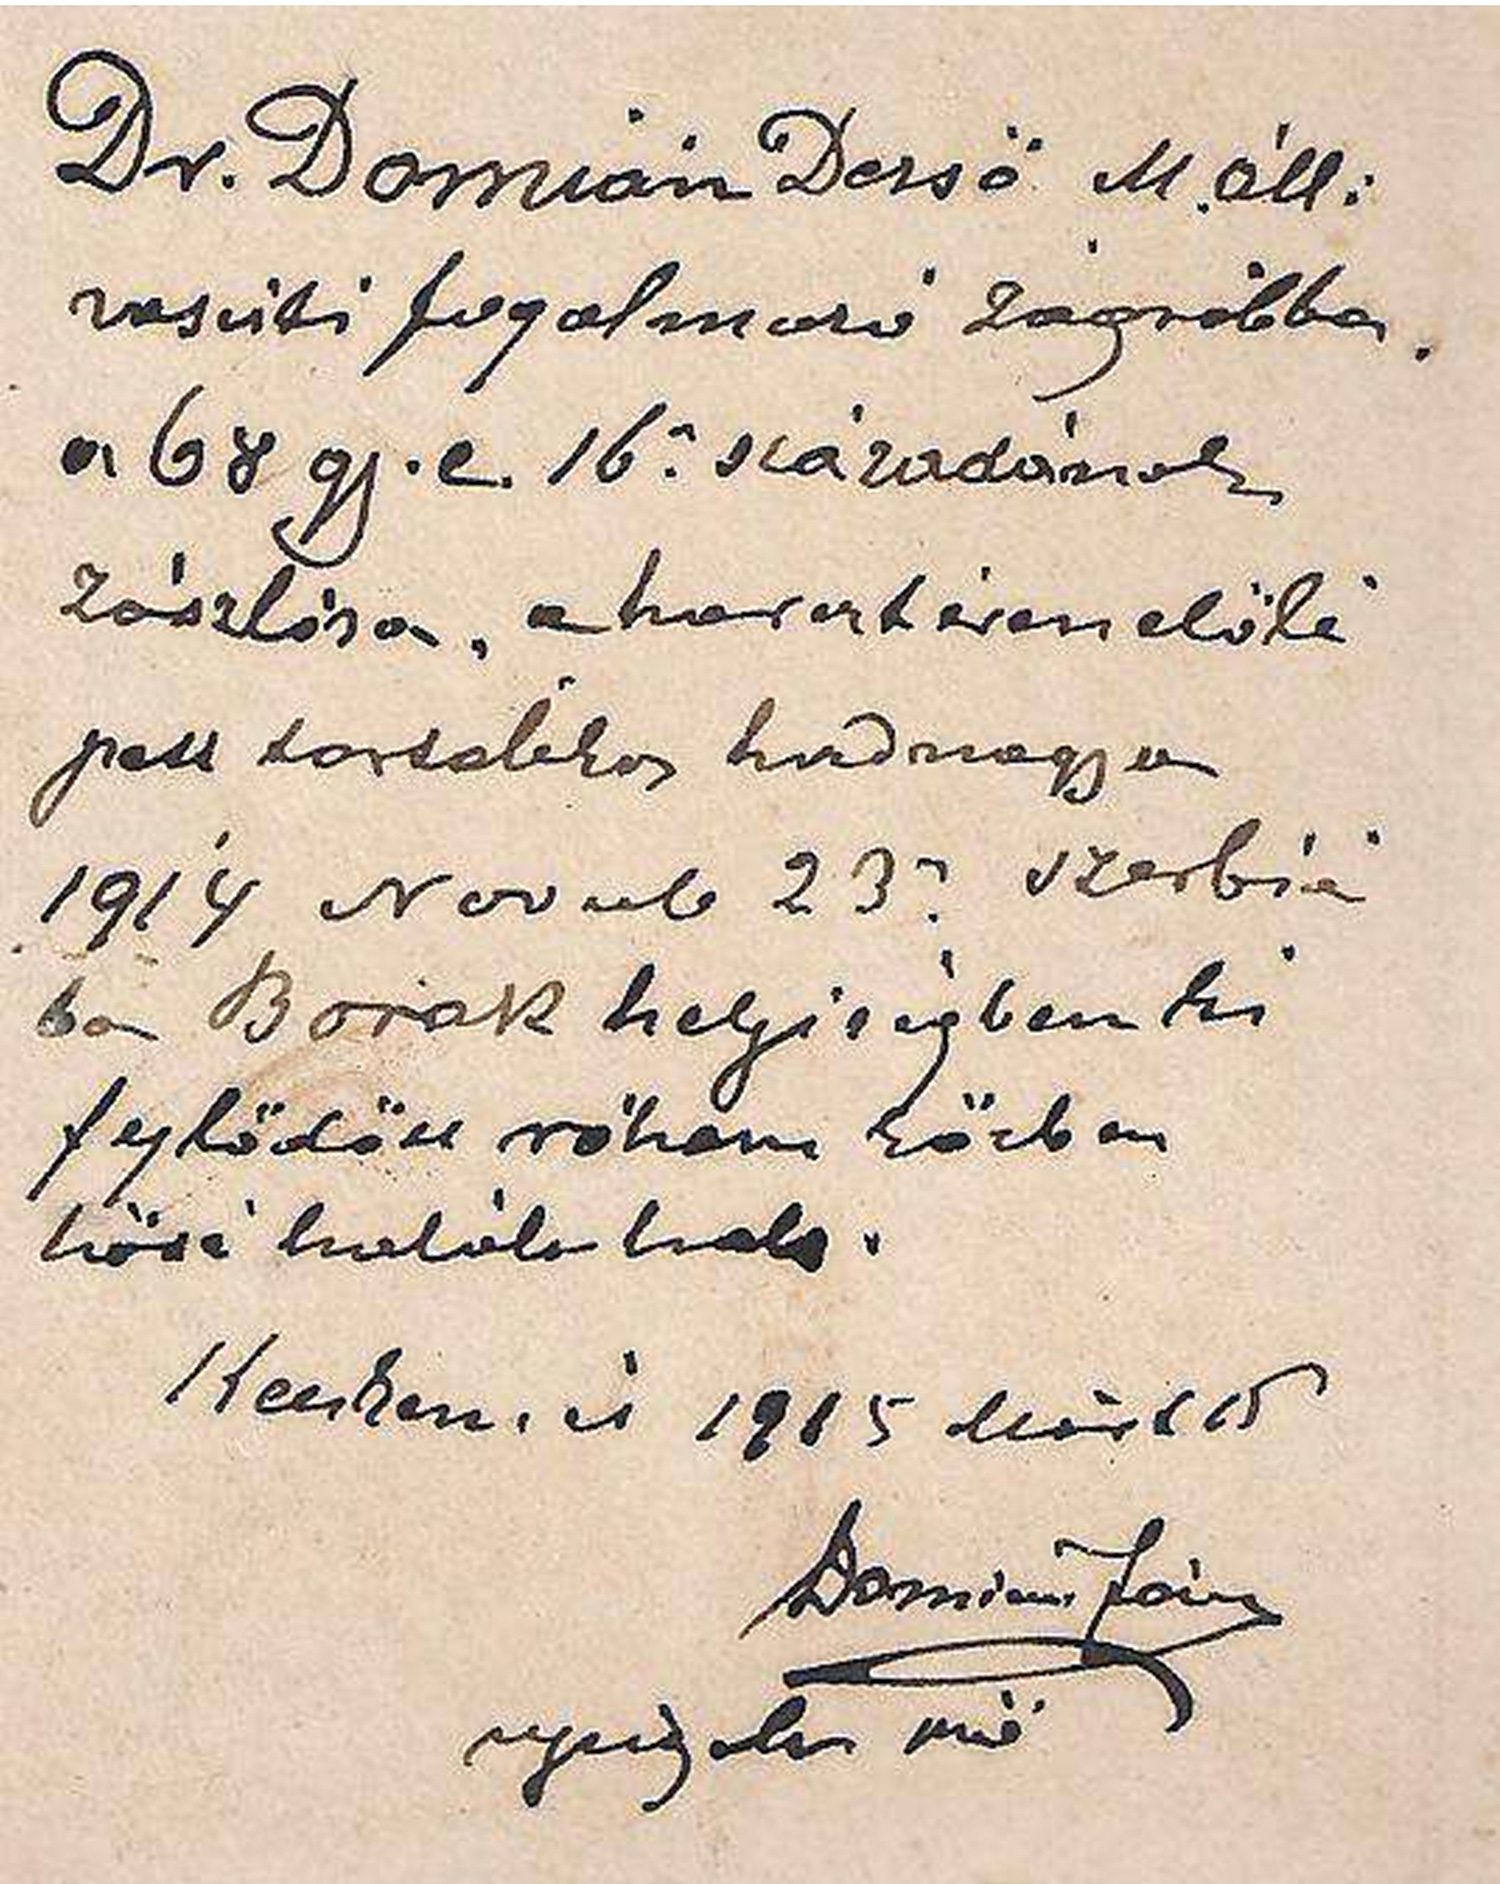 Dr. Domián Dersö M. áll.
vasúti fogalmazó Zágrábba.
a 68 gy. e. 16.ª századának
zászlósa, a harcztéren előlé
pett tartalékos hadnagya
1914 Novemb 23ª szerbiá
ba Borak helyiségben ki
fejlödött roham közben
hősi halált halt.
Kecskem. és 1915 Márt 15
Domián János
nyugalm